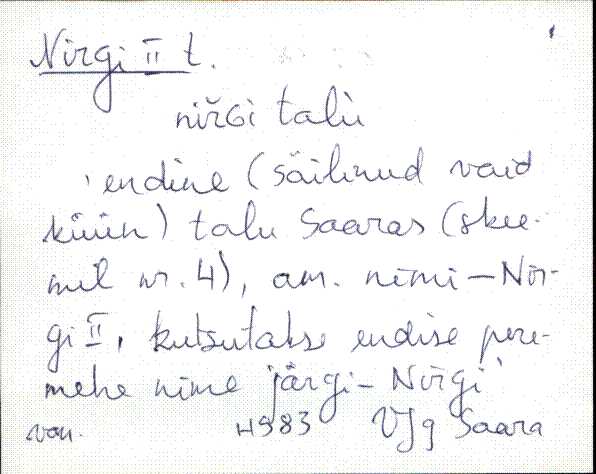 Nirgi II t.
nirGi talù
'endine (säilinud vaid
küün) talu Saaras (skee-
mil nr. 4), am. nimi - Nir-
gi II, kutsutakse endise pere-
mehe nime järgi - Nirgi'
van. H983 VJg Saara